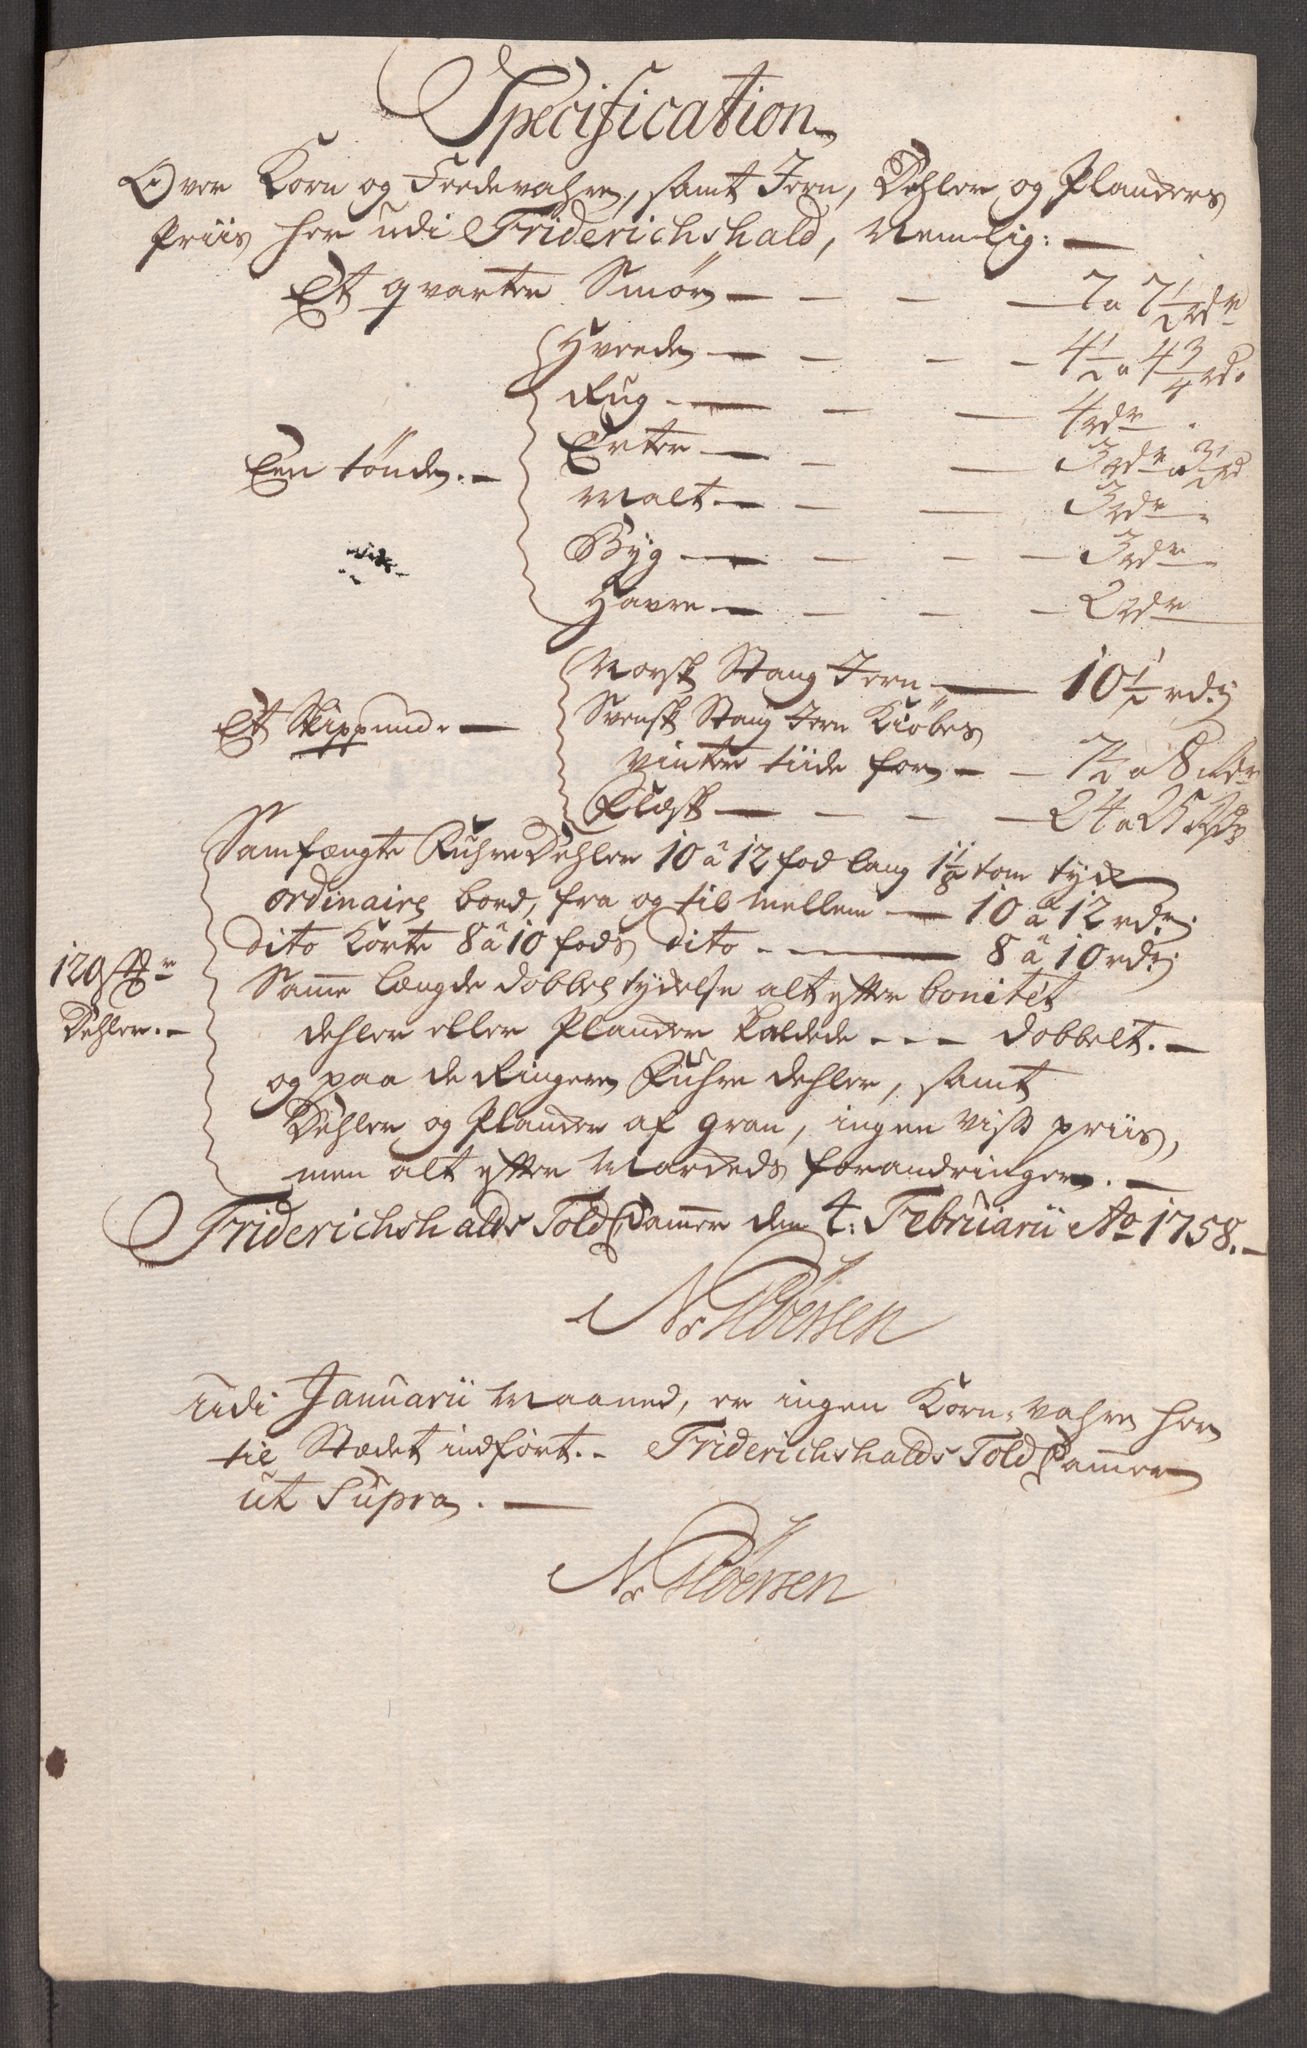 Specification
Over Korn og Feedevahre, samt Jern, Dehler og Planckers
Priis her udi Friderichshald, Nemlig: —
Et qvarter Smør — — — — 7 a 7 1/2 rdr
Hvede — — — — 4 1/2 a 4 3/4 rd.
Rug. — — — 4 rdr.
Een tönde. — Erter — — — 3 rdr a 3 1/2 rd
Malt. — — — 3 rdr.
Byg — — — — 3 rdr.
Havre — — — — 2 rdr
Norsk Stang Jern — 10 1/2 rdr;
Et Skippund. — Svensk Stang Jern Kiöbes
vinter tiide for — — 7 1/2 a 8 rdr
Flæsk — — — — 24 a 25 rdr
Samfængte Fuhre Dehler 10 â 12 fod lang 1 1/8 tom tyck
ordinaire bord, fra og til mellem — 10 â 12 rdr;
dito Korte 8 â 10 fods dito. — 8 â 10 rdr;
120 St:r
Dehler. —
Samme længde dobbel tydelse alt efter bonitét
dehler eller Plancker kaldede - - - dobbelt. —
og paa de Ringere Fuhre dehler, samt
Dehler og Plancker af gran, ingen viss priis,
men alt efter Marckeds forandringer. —
Friderichshalds Told Cammer den 4: Februarii Ao 1758. —
N. Ibersen
udi Januarii Maaned, er ingen Korn-vahre her
til Stædet indført. - Friderichshalds Told Cammer
ut Supra. —
N. Ibersen